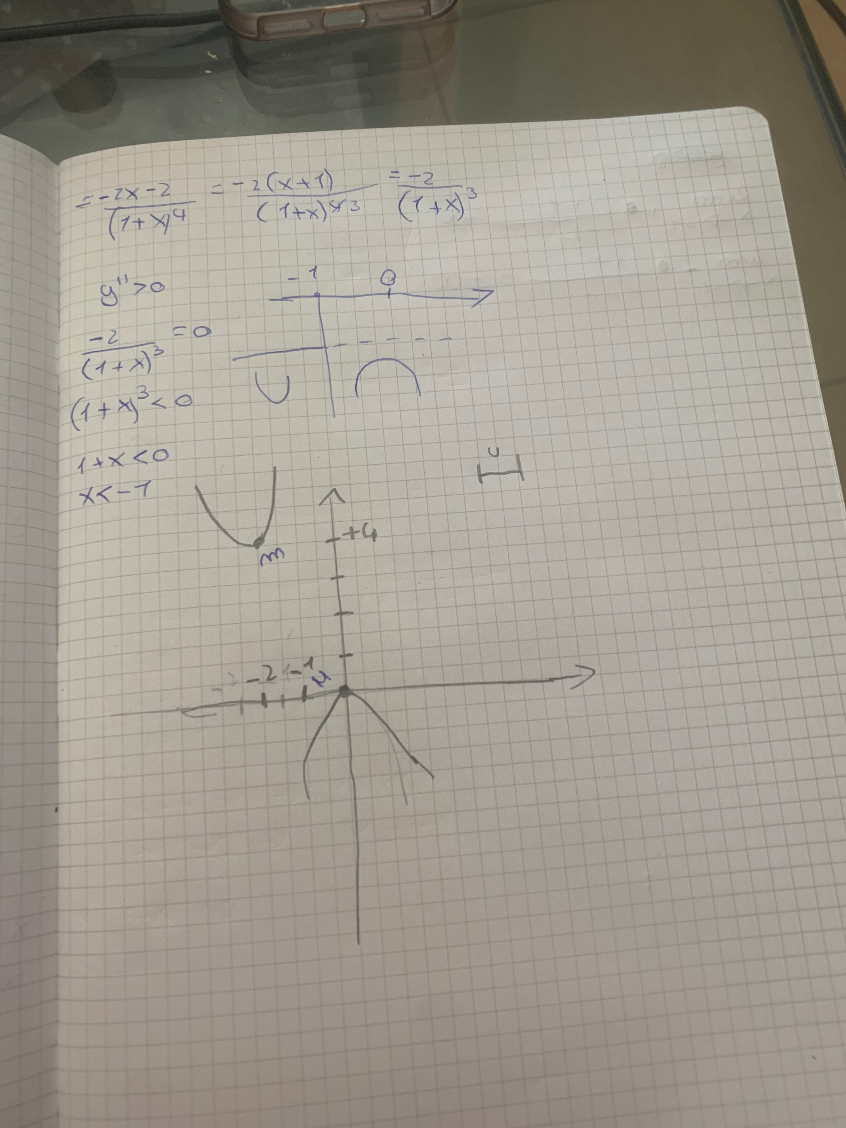 = -2x-2/(1+x)^4 = -2(x+1)/(1+x)^4 3 = -2/(1+x)^3
y">0
-1 0
-2/(1+x)^3 = 0
(1+x)^3 < 0
1+x<0
x<-1
+4
m
-2 -1
M